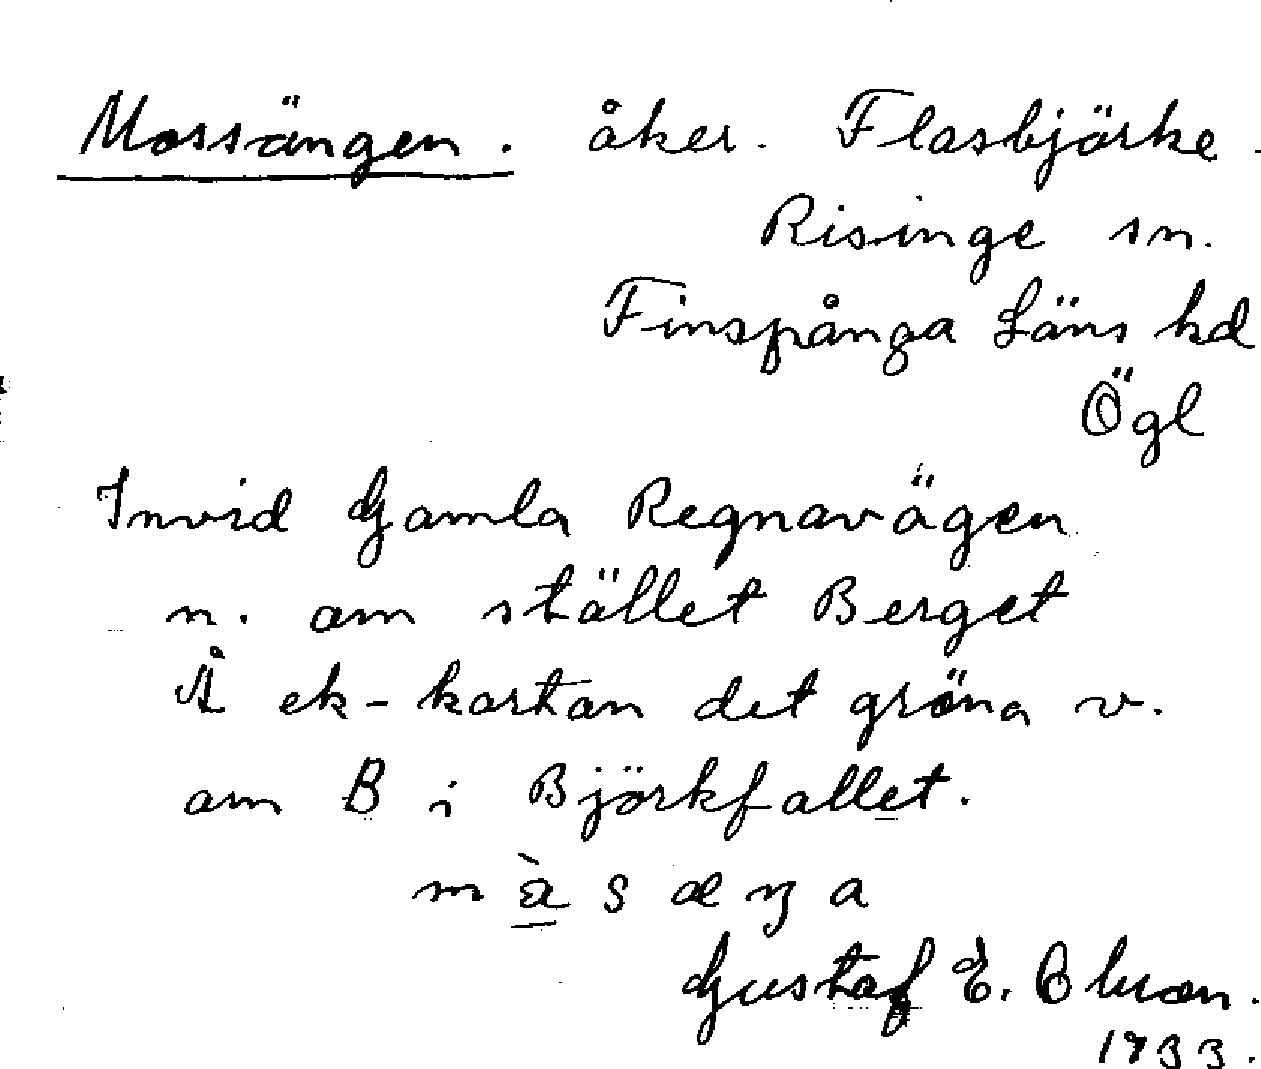 Mossängen. åker. Flasbjörke.
Risinge sn.
Finspånga Läns hd
Ögl
Invid Gamla Regnavägen
n. om stället Berget
Å ek-kartan det gröna v.
om B i Björkfallet.
Gustaf E.
1933.